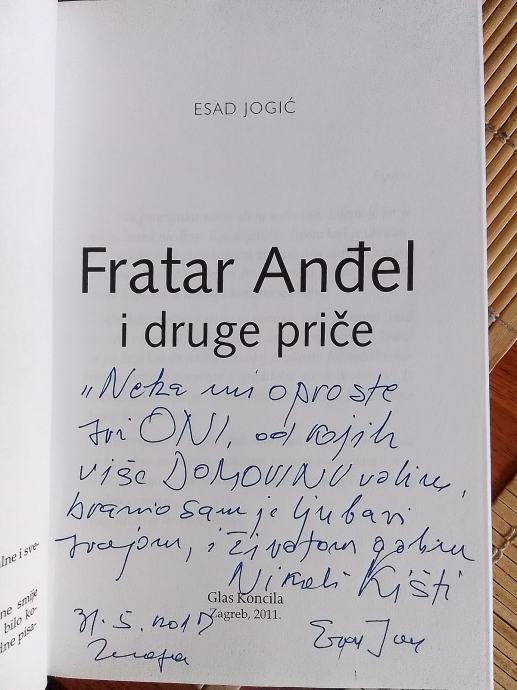 ESAD JOGIĆ
Fratar Anđel
i druge priče
„Neka mi oproste
svi ONI, od kojih
više DOMOVINU volim,
branio sam je ljubavi
svojom, i životom
Nikoli Kišti
Glas Koncila
Zagreb, 2011.
31. 5.
lne i sve-
ne smije
bilo ko-
dne pisa-